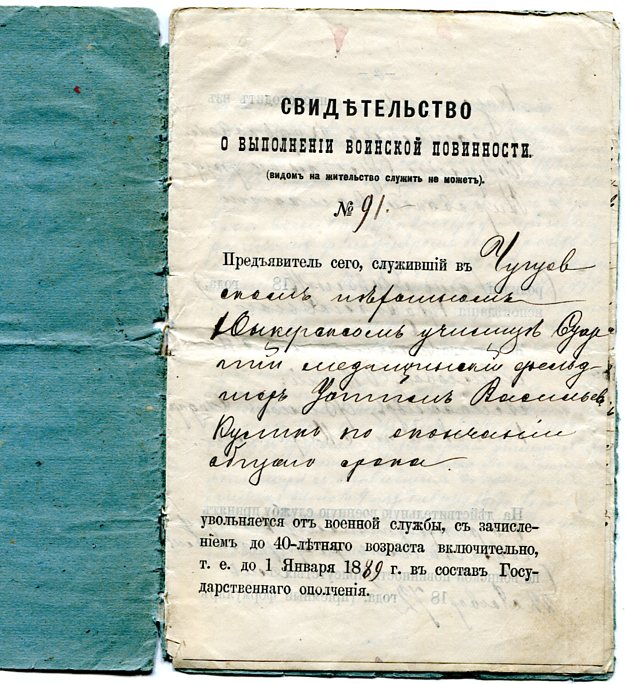 СВИДѢТЕЛЬСТВО
О ВЫПОЛНЕНІИ ВОИНСКОЙ ПОВИННОСТИ.
(видомъ на жительство служить не можетъ).
№ 91.
Предъявитель сего, служившій въ Чугуев
скомъ пѣхотномъ
Юнкерскомъ училищѣ Стар
шій медицинскій фельд
шеръ Васильев
Кулинъ по окончаніи
общаго срока.
увольняется отъ военной службы, съ зачисле-
ніемъ до 40-лѣтняго возраста включительно,
т. е. до 1 Января 1889 г. въ составъ Госу-
дарственнаго ополченія.